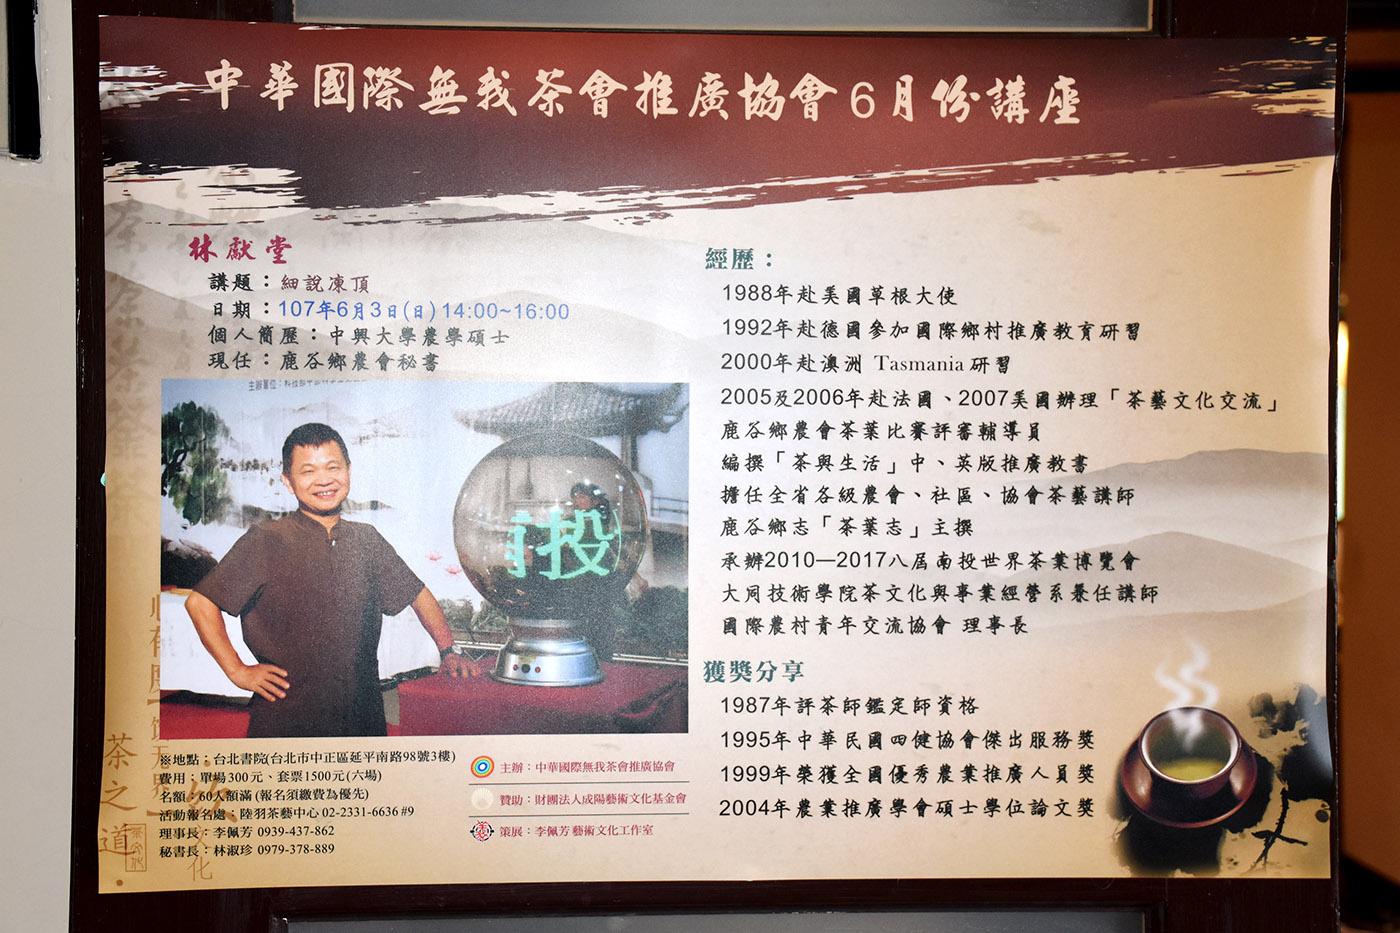 中華國際無我茶會推廣協會6月份講座
林獻堂
講題：細說凍頂
日期：107年6月3日(日)14:00~16:00
個人簡歷：中興大學農學碩士
現任：鹿谷鄉農會秘書
投
※地點：台北書院(台北市中正區延平南路98號3樓)
費用：單場300元、套票1500元(六場)
名額：60人額滿(報名須繳費為優先)
活動報名處：陸羽茶藝中心 02-2331-6636 #9
理事長：李佩芳 0939-437-862
秘書長：林淑珍 0979-378-889
主辦：中華國際無我茶會推廣協會
贊助：財團法人成陽藝術文化基金會
策展：李佩芳藝術文化工作室
經歷：
1988年赴美國草根大使
1992年赴德國參加國際鄉村推廣教育研習
2000年赴澳洲 Tasmania 研習
2005及2006年赴法國、2007美國辦理「茶藝文化交流」
鹿谷鄉農會茶葉比賽評審輔導員
編撰「茶與生活」中、英版推廣教書
擔任全省各級農會、社區、協會茶藝講師
鹿谷鄉志「茶葉志」主撰
承辦2010—2017八屆南投世界茶業博覽會
大同技術學院茶文化與事業經營系兼任講師
國際農村青年交流協會 理事長
獲獎分享
1987年評茶師鑑定師資格
1995年中華民國四健協會傑出服務獎
1999年榮獲全國優秀農業推廣人員獎
2004年農業推廣學會碩士學位論文獎
茶之道